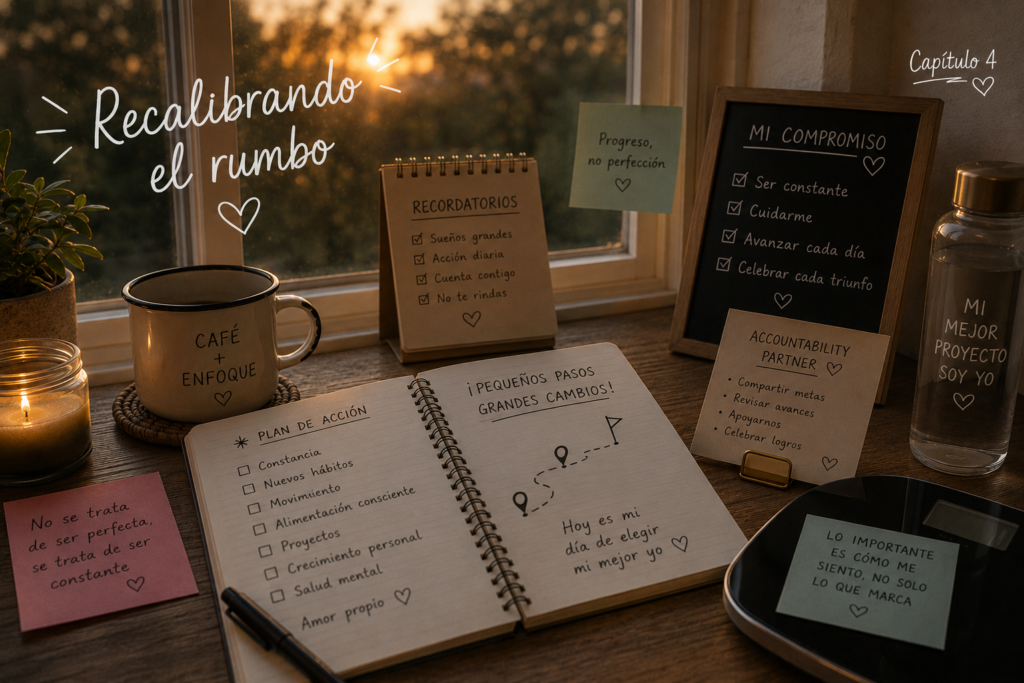 Recalibrando
el rumbo
Capítulo 4
RECORDATORIOS
Sueños grandes
Acción diaria
Cuenta contigo
No te rindas
Progreso,
no perfección
MI COMPROMISO
Ser constante
Cuidarme
Avanzar cada día
Celebrar cada triunfo
CAFÉ
+
ENFOQUE
ACCOUNTABILITY
PARTNER
• Compartir metas
• Revisar avances
• Apoyarnos
• Celebrar logros
MI
MEJOR
PROYECTO
SOY YO
* PLAN DE ACCIÓN
Constancia
Nuevos hábitos
Movimiento
Alimentación consciente
Proyectos
Crecimiento personal
Salud mental
Amor propio
¡PEQUEÑOS PASOS
GRANDES CAMBIOS!
Hoy es mi
día de elegir
mi mejor yo
No se trata
de ser perfecta,
se trata de ser
constante
LO IMPORTANTE
ES CÓMO ME
SIENTO, NO SOLO
LO QUE MARCA